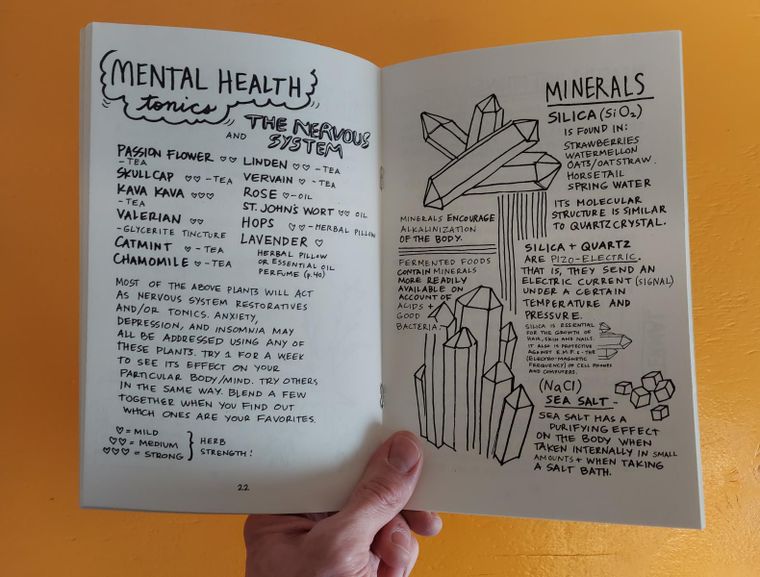 MENTAL HEALTH
tonics
AND THE NERVOUS
SYSTEM
PASSION FLOWER ♡♡
- TEA
SKULLCAP ♡♡ - TEA
KAVA KAVA ♡♡♡
- TEA
VALERIAN ♡♡
- GLYCERITE TINCTURE
CATMINT ♡ - TEA
CHAMOMILE ♡ - TEA
LINDEN ♡♡ - TEA
VERVAIN ♡ - TEA
ROSE ♡ - OIL
ST. JOHN'S WORT ♡♡ OIL
HOPS ♡♡ - HERBAL PILLOW
LAVENDER ♡
HERBAL PILLOW
OR ESSENTIAL OIL
PERFUME (p.40)
MOST OF THE ABOVE PLANTS WILL ACT
AS NERVOUS SYSTEM RESTORATIVES
AND/OR TONICS. ANXIETY,
DEPRESSION, AND INSOMNIA MAY
ALL BE ADDRESSED USING ANY OF
THESE PLANTS. TRY 1 FOR A WEEK
TO SEE ITS EFFECT ON YOUR
PARTICULAR BODY/MIND. TRY OTHERS
IN THE SAME WAY. BLEND A FEW
TOGETHER WHEN YOU FIND OUT
WHICH ONES ARE YOUR FAVORITES.
♡ = MILD
♡♡ = MEDIUM
♡♡♡ = STRONG
HERB
STRENGTH!
22
MINERALS
SILICA (SiO2)
IS FOUND IN:
STRAWBERRIES
WATERMELLON
OATS/OATSTRAW.
HORSETAIL
SPRING WATER
ITS MOLECULAR
STRUCTURE IS SIMILAR
TO QUARTZ CRYSTAL.
MINERALS ENCOURAGE
ALKALINIZATION
OF THE BODY.
FERMENTED FOODS
CONTAIN MINERALS
MORE READILY
AVAILABLE ON
ACCOUNT OF
ACIDS +
GOOD
BACTERIA.
SILICA + QUARTZ
ARE PIZO-ELECTRIC.
THAT IS, THEY SEND AN
ELECTRIC CURRENT (SIGNAL)
UNDER A CERTAIN
TEMPERATURE AND
PRESSURE.
SILICA IS ESSENTIAL
FOR THE GROWTH OF
HAIR, SKIN AND NAILS.
IT ALSO IS PROTECTIVE
AGAINST E.M.F.s - THE
(ELECTRO-MAGNETIC
FREQUENCY) OF CELL PHONES
AND COMPUTERS.
(NaCl)
SEA SALT -
SEA SALT HAS A
PURIFYING EFFECT
ON THE BODY WHEN
TAKEN INTERNALLY IN SMALL
AMOUNTS + WHEN TAKING
A SALT BATH.